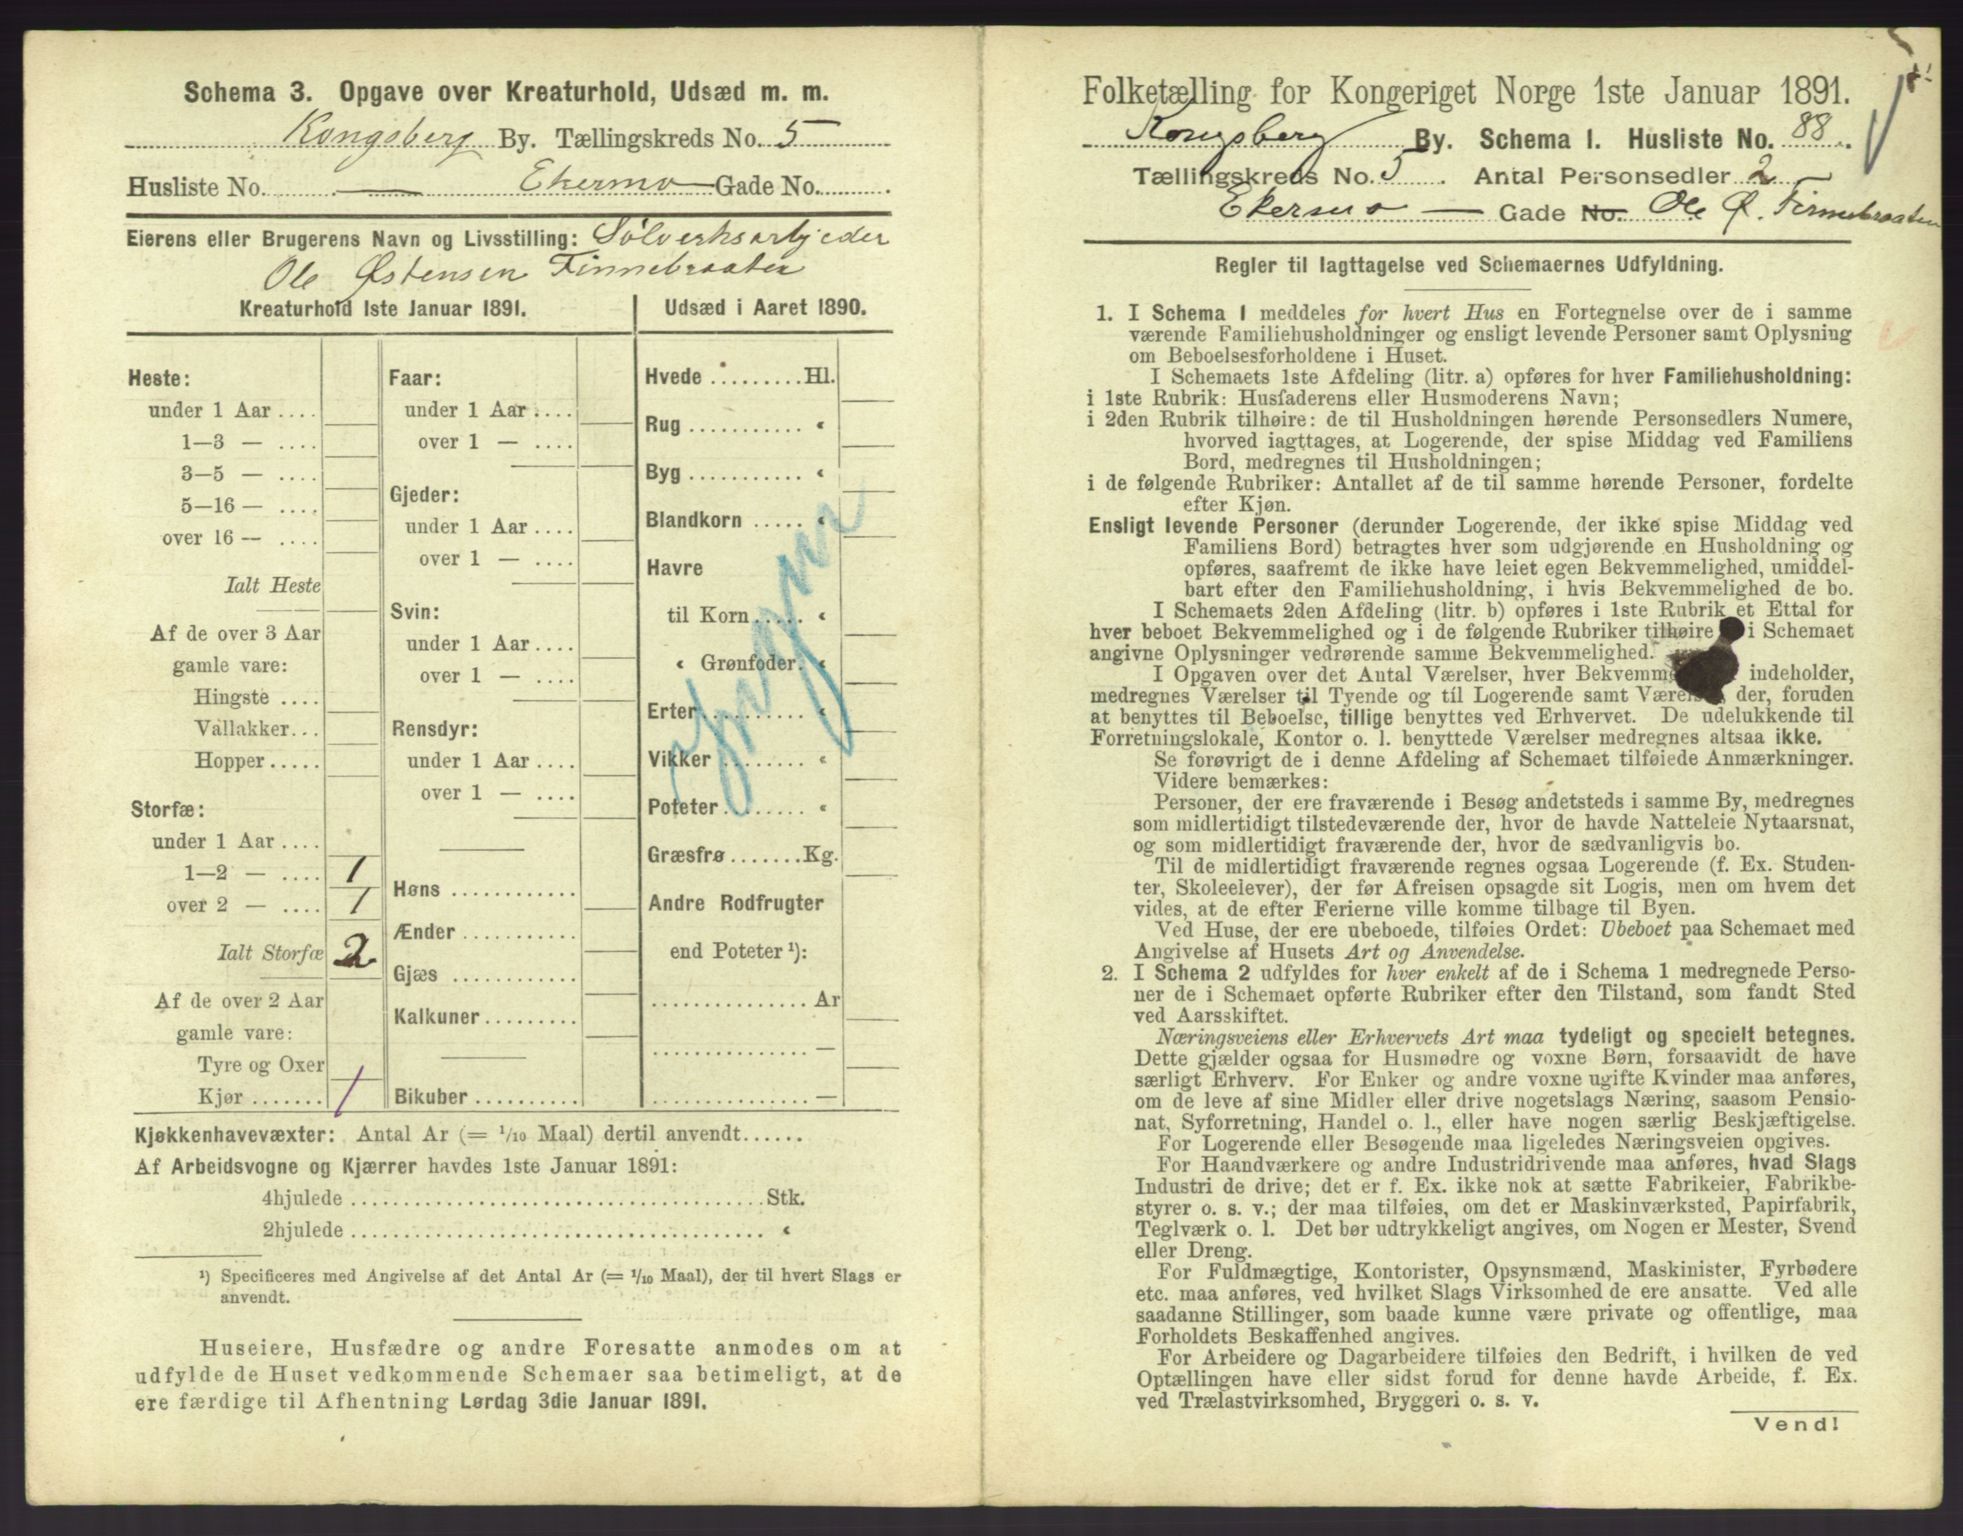 Schema 3. Opgave over Kreaturhold, Udsæd m. m.
Kongsberg By. Tællingskreds No. 5
Husliste No. — Ekermo Gade No.
Eierens eller Brugerens Navn og Livsstilling: Sølverksarbjeder
Ole Østensen Finnebraaten
Kreaturhold 1ste Januar 1891.
Heste:
under 1 Aar ....
1—3 — ....
3—5 — ....
5—16 — ....
over 16 — ....
Ialt Heste
Af de over 3 Aar
gamle vare:
Hingste ....
Vallakker...
Hopper .....
Storfæ:
under 1 Aar ....
1—2 — .... 1
over 2 — .... 1
Ialt Storfæ 2
Af de over 2 Aar
gamle vare:
Tyre og Oxer
Kjør ....... 1
Faar:
under 1 Aar ....
over 1 — ....
Gjeder:
under 1 Aar ....
over 1 — ....
Svin:
under 1 Aar ....
over 1 — ....
Rensdyr:
under 1 Aar ....
over 1 — ....
Høns ............
Ænder ...........
Gjæs ............
Kalkuner.........
Bikuber ..........
Udsæd i Aaret 1890.
Hvede .........Hl.
Rug ........... «
Byg ........... «
Blandkorn ..... «
Havre
til Korn ..... «
« Grønfoder. «
Erter.......... «
Vikker ........ «
Poteter........ «
Græsfrø .......Kg.
Andre Rodfrugter
end Poteter ¹):
............... Ar
............... —
............... —
Ingen
Kjøkkenhavevæxter: Antal Ar (= 1/10 Maal) dertil anvendt......
Af Arbeidsvogne og Kjærrer havdes 1ste Januar 1891:
4hjulede ........................................Stk.
2hjulede ........................................ «
¹) Specificeres med Angivelse af det Antal Ar (= 1/10 Maal), der til hvert Slags er
anvendt.
Huseiere, Husfædre og andre Foresatte anmodes om at
udfylde de Huset vedkommende Schemaer saa betimeligt, at de
ere færdige til Afhentning Lørdag 3die Januar 1891.
Folketælling for Kongeriget Norge 1ste Januar 1891.
Kongsberg By. Schema I. Husliste No. 88.
Tællingskreds No. 5. Antal Personsedler 2
Ekersmo — Gade No. Ole Ø. Finnebraaten
Regler til Iagttagelse ved Schemaernes Udfyldning.
1. I Schema 1 meddeles for hvert Hus en Fortegnelse over de i samme
værende Familiehusholdninger og ensligt levende Personer samt Oplysning
om Beboelsesforholdene i Huset.
I Schemaets 1ste Afdeling (litr. a) opføres for hver Familiehusholdning:
i 1ste Rubrik: Husfaderens eller Husmoderens Navn;
i 2den Rubrik tilhøire: de til Husholdningen hørende Personsedlers Numere,
hvorved iagttages, at Logerende, der spise Middag ved Familiens
Bord, medregnes til Husholdningen;
i de følgende Rubriker: Antallet af de til samme hørende Personer, fordelte
efter Kjøn.
Ensligt levende Personer (derunder Logerende, der ikke spise Middag ved
Familiens Bord) betragtes hver som udgjørende en Husholdning og
opføres, saafremt de ikke have leiet egen Bekvemmelighed, umiddel-
bart efter den Familiehusholdning, i hvis Bekvemmelighed de bo.
I Schemaets 2den Afdeling (litr. b) opføres i 1ste Rubrik et Ettal for
hver beboet Bekvemmelighed og i de følgende Rubriker tilhøire i Schemaet
angivne Oplysninger vedrørende samme Bekvemmelighed.
I Opgaven over det Antal Værelser, hver Bekvemme indeholder,
medregnes Værelser til Tyende og til Logerende samt Værelser, der, foruden
at benyttes til Beboelse, tillige benyttes ved Erhvervet. De udelukkende til
Forretningslokale, Kontor o. l. benyttede Værelser medregnes altsaa ikke.
Se forøvrigt de i denne Afdeling af Schemaet tilføiede Anmærkninger.
Videre bemærkes:
Personer, der ere fraværende i Besøg andetsteds i samme By, medregnes
som midlertidigt tilstedeværende der, hvor de havde Natteleie Nytaarsnat,
og som midlertidigt fraværende der, hvor de sædvanligvis bo.
Til de midlertidigt fraværende regnes ogsaa Logerende (f. Ex. Studen-
ter, Skoleelever), der før Afreisen opsagde sit Logis, men om hvem det
vides, at de efter Ferierne ville komme tilbage til Byen.
Ved Huse, der ere ubeboede, tilføies Ordet: Ubeboet paa Schemaet med
Angivelse af Husets Art og Anvendelse.
2. I Schema 2 udfyldes for hver enkelt af de i Schema 1 medregnede Perso-
ner de i Schemaet opførte Rubriker efter den Tilstand, som fandt Sted
ved Aarsskiftet.
Næringsveiens eller Erhvervets Art maa tydeligt og specielt betegnes.
Dette gjælder ogsaa for Husmødre og voxne Børn, forsaavidt de have
særligt Erhverv. For Enker og andre voxne ugifte Kvinder maa anføres,
om de leve af sine Midler eller drive nogetslags Næring, saasom Pensio-
nat, Syforretning, Handel o. l., eller have nogen særlig Beskjæftigelse.
For Logerende eller Besøgende maa ligeledes Næringsveien opgives.
For Haandværkere og andre Industridrivende maa anføres, hvad Slags
Industri de drive; det er f. Ex. ikke nok at sætte Fabrikeier, Fabrikbe-
styrer o. s. v.; der maa tilføies, om det er Maskinværksted, Papirfabrik,
Teglværk o. l. Det bør udtrykkeligt angives, om Nogen er Mester, Svend
eller Dreng.
For Fuldmægtige, Kontorister, Opsynsmænd, Maskinister, Fyrbødere
etc. maa anføres, ved hvilket Slags Virksomhed de ere ansatte. Ved alle
saadanne Stillinger, som baade kunne være private og offentlige, maa
Forholdets Beskaffenhed angives.
For Arbeidere og Dagarbeidere tilføies den Bedrift, i hvilken de ved
Optællingen have eller sidst forud for denne havde Arbeide, f. Ex.
ved Trælastvirksomhed, Bryggeri o. s. v.
Vend!